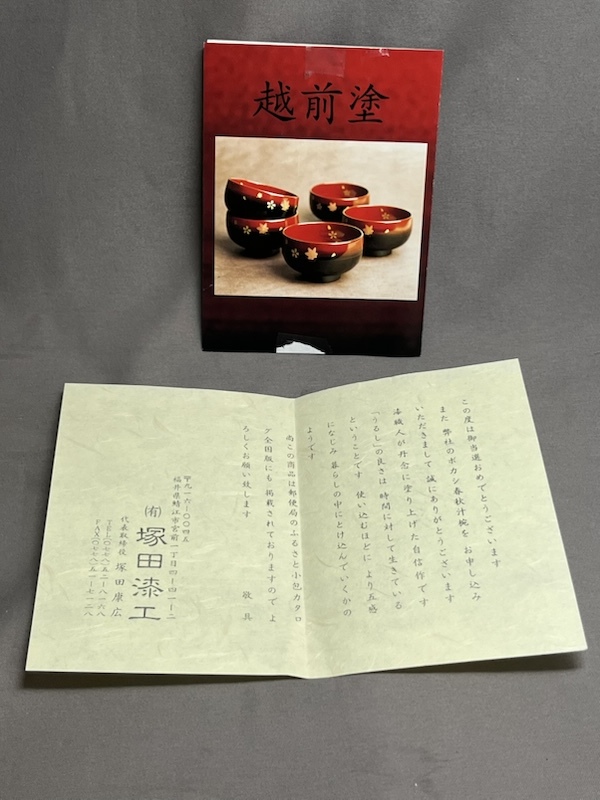 越前塗
この度は御当選おめでとうございます
また 弊社のボカシ春秋汁椀を お申し込み
いただきまして 誠にありがとうございます
漆職人が丹念に塗り上げた自信作です
「うるし」の良さは 時間に対して生きている
ということです 使い込むほどに より五感
になじみ 暮らしの中にとけ込んでいくかの
ようです
尚この商品は郵便局のふるさと小包カタロ
グ全国版にも 掲載されておりますので よ
ろしくお願い致します
敬具
〒九一六-〇〇四五
福井県鯖江市宮前一丁目四-四一-二
(有)塚田漆工
代表取締役 塚田康広
TEL〇七七八-五二-八一六八
FAX〇七七八-五一-七一二八